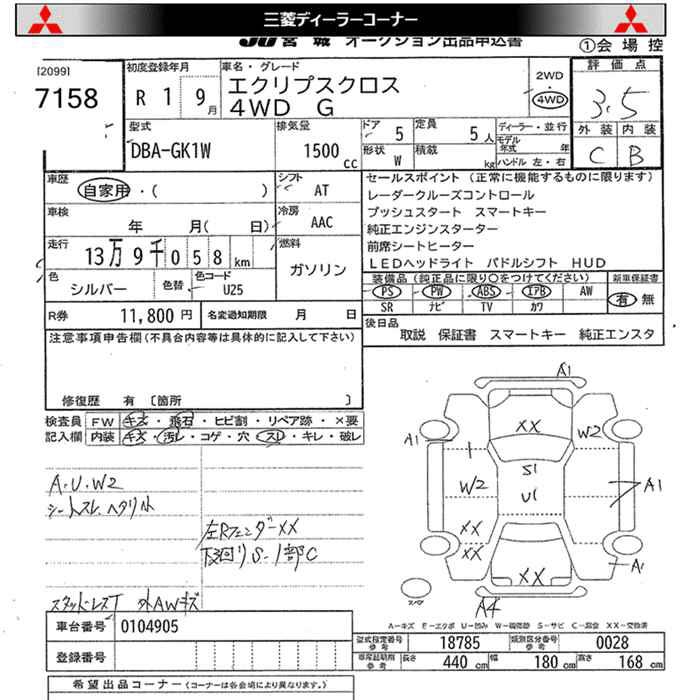 三菱ディーラーコーナー
JU 宮 城 オークション出品申込書
①会 場 控
[2099]
7158
初度登録年月
R 1 9月
車名・グレード
エクリプスクロス
4WD G
2WD
・
4WD
評 価 点
3.5
外 装 内 装
C B
型式
DBA-GK1W
排気量
1500 cc
ドア 5
定員 5 人
形状 W
積載 kg
ディーラー・並行
モデル年式 年
ハンドル 左・右
車歴
自家用・( )
シフト
AT
車検
年 月( 日)
冷房
AAC
走行
13万9千058 km
燃料
ガソリン
色
シルバー
色替
色コード
U25
セールスポイント (正常に機能するものに限ります)
レーダークルーズコントロール
プッシュスタート スマートキー
純正エンジンスターター
前席シートヒーター
LEDヘッドライト パドルシフト HUD
装備品 (純正品に限り○をつけてください)
新車保証書
PS PW ABS エアB AW
SR ナビ TV カワ
有 無
R券 11,800 円
名変過期限 月 日
後日品
取説 保証書 スマートキー 純正エンスタ
注意事項申告欄 (不具合内容等は具体的に記入して下さい)
修復歴 有 〔箇所 〕
検査員
記入欄
FW キズ・飛石・ヒビ割・リペア跡・×要
内装 キズ・汚レ・コゲ・穴・スレ・キレ・破レ
A.U.W2
シートスレ、ヘタリ小
左Rフェンダー XX
下回りS.一部C
スタッドレスT 外AWキズ
A1
XX
W2
A1
S1
U1
W2
A1
XX
XX
XX
A1
A4
スペア
A-キズ E-エクボ U-凹み W-補修跡 S-サビ C-腐食 XX-交換済
車台番号 0104905
登録番号
型式指定番号
参考
18785
類別区分番号
参考
0028
車庫証明用
参考
長さ 440 cm 幅 180 cm 高さ 168 cm
希望出品コーナー (コーナーは各会場により異なります。)